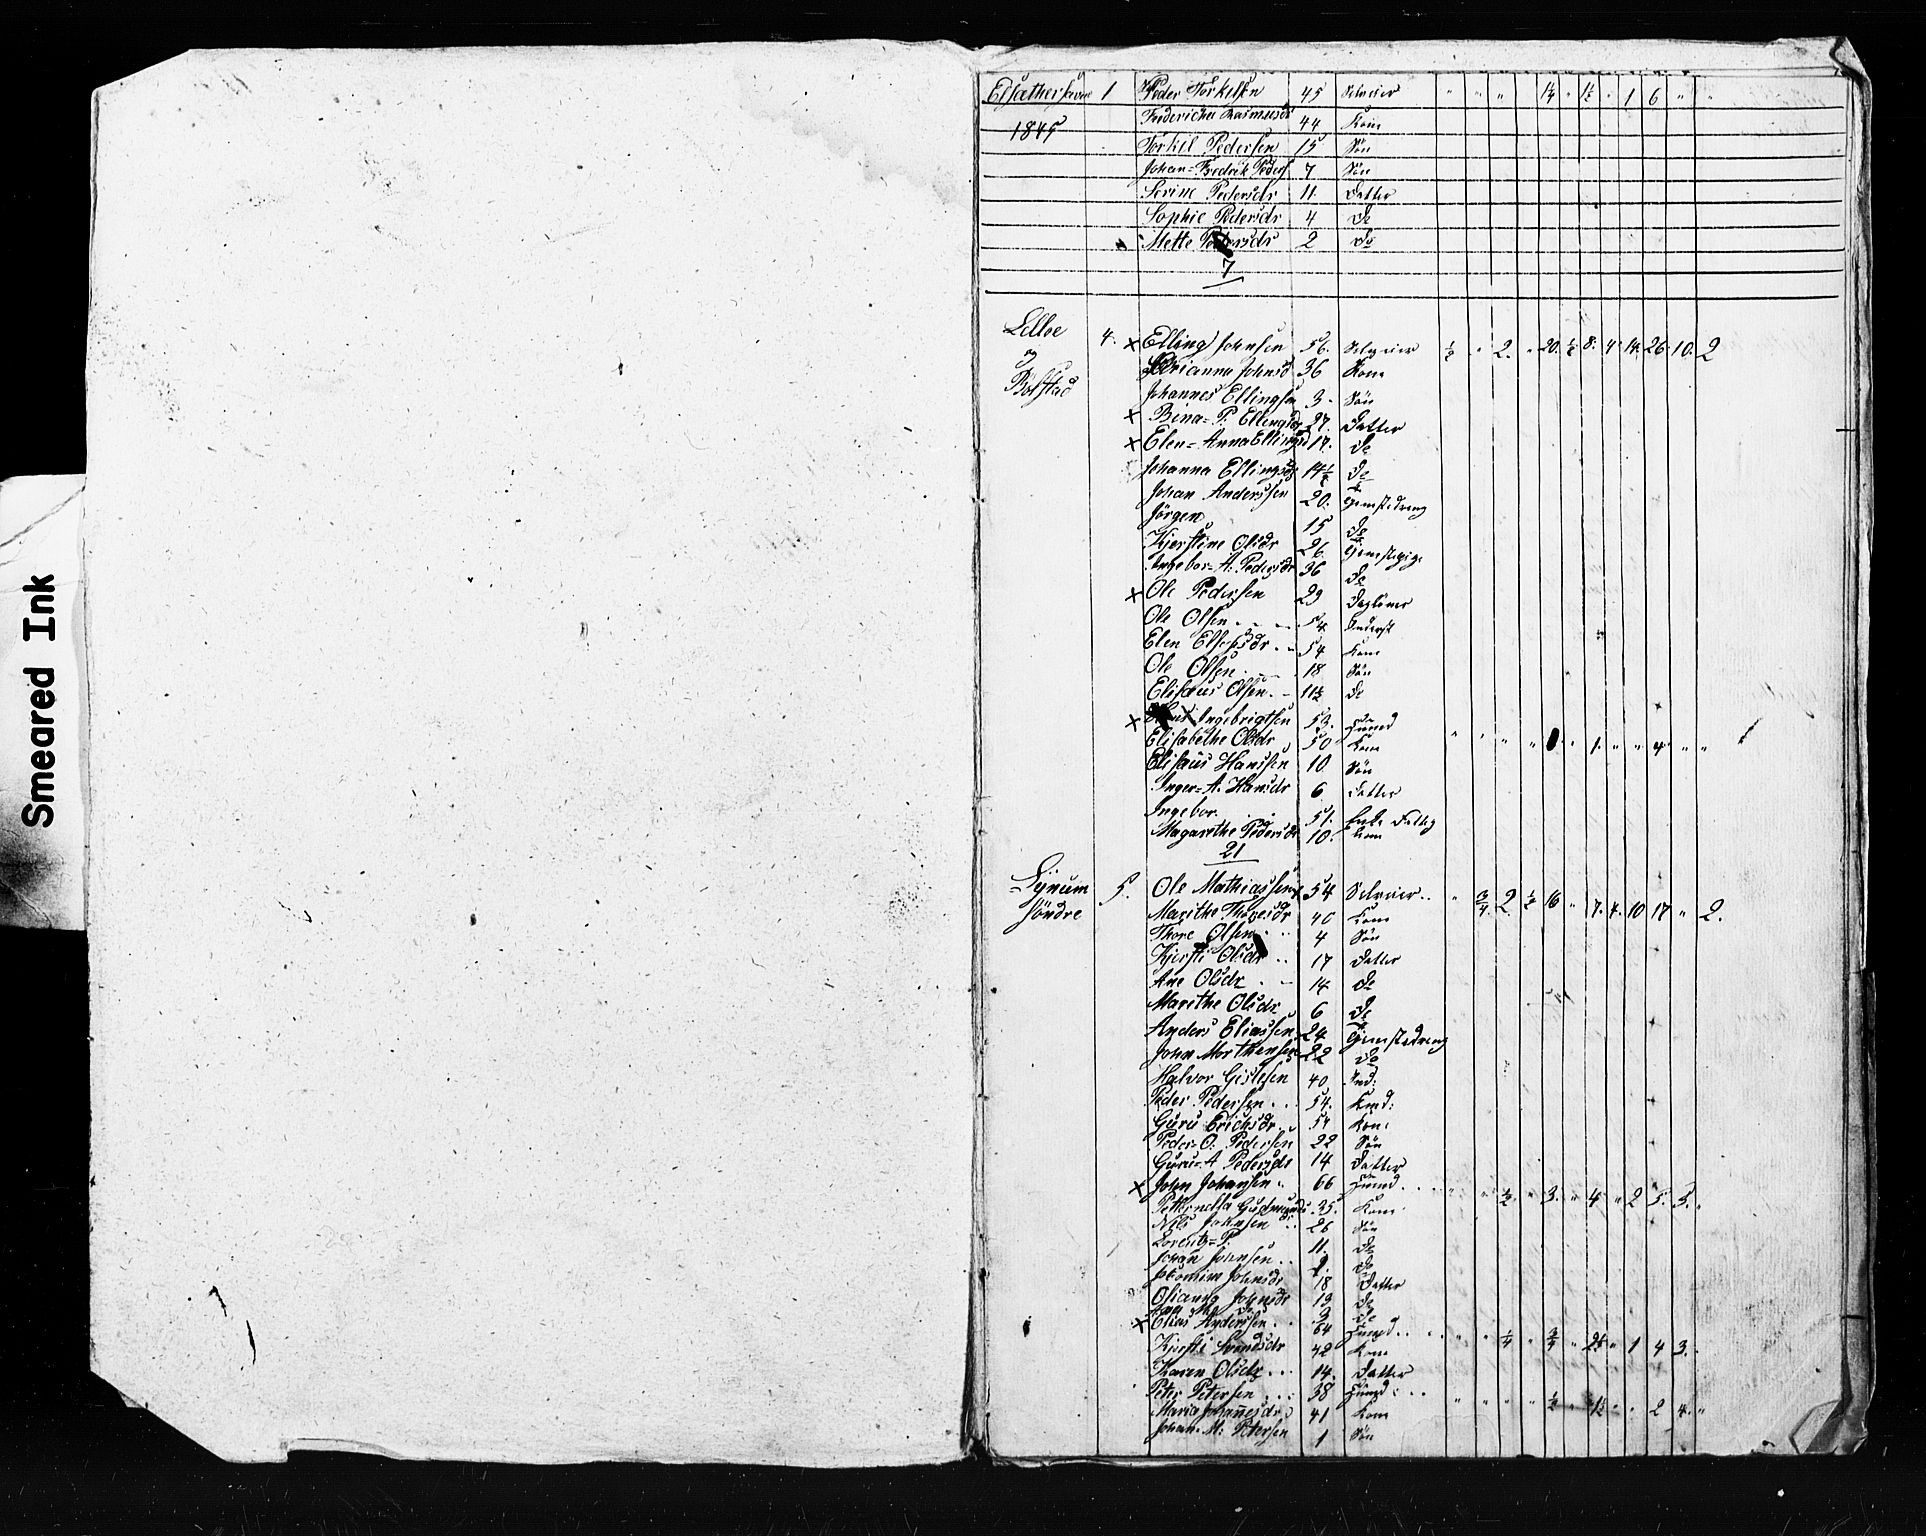 Smeared Ink
1 Peder Torkelsen 45 Selveier " " " 1¼ " 1½ " 1 6 " "
1845 44 Kone
Torkel Pedersen 15 Søn
Johan=Fredrik Peders 7 Søn
Serine Pedersdr 11 Datter
Sophie Pedersdr 4 Do
Mette Pedersdr 2 Do
7
4. × Elling Johnsen 56. Selveier ½ " 2. " 20. ½ 8. 4 14. 26. 10. 2
Johnsd 36 Kone
Bolstad
Johannes Ellingsen 3 Søn
× Bina=P. Ellingsdr 27. Datter
× Elen=Anna Ellingsd 17. Do
Johanna Ellingsdr 14½ Do
Johan Anderssen 20. Tjenstedreng
Jörgen 15 Do
Kjerstine Olsdr 26. Tjenstepige
Ingebor=A. Pedersdr 36 Do
× Ole Pedersen 29 Daglöner
Ole Olsen 54 Inderst
Elen 54 Kone
Ole Olsen 18 Søn
Elisæus Olsen 11½ Do
× Ingebrigtsen 53. Huusmd
Elisabethe Olsdr 50 Kone " " " " " 1. " " 4 " "
Elisæus Hanssen 10 Søn
Inger=A. Hansdr 6 Datter
Ingebor. 51.
Magarethe Pedersdr 10.
21
Synum 5. Ole Mathiassen 54 Selveier " ¾. 2. ½ 16 " 7. 4. 10 17 " 2.
söndre Marithe 40 Kone
Thore Olsen 4 Søn
Kjersti Olsdr 17 Datter
Ane Olsdr 14 Do
Marithe Olsdr 6 Do
Anders Eliassen 24 Tjenstedreng
John Morthensen 22 Do
Halvor Gislesen 40 Ind:
Peder Pedersen 54.
Guru Erichsdr 54 Kone
Peder=O. Pedersen 22 Søn
Guru=A Pedersdr 14 Datter
× John Johansen 66 Huusmd " " ½ " 3. " 4 " 2 5. 3. "
35. Kone
Nils Johnsen 26 Søn
Lorentz=P. 11. Do
Johan Johnsen Do
Johnsdr 18 Datter
Johnsdr 13 Do
3 Do
× Elias Anderssen 64 Huusmd " " ¼ " ¾ " 2½ " 1 4 3.
Kjersti 42 Kone
Karen Olsdr 14. Datter
Peter Petersen 38 Huusmd " " " " ½ " 1½ " " 2 4. "
Maria Johannesdr 41 Kone
Johan=M: Petersen 1 Søn